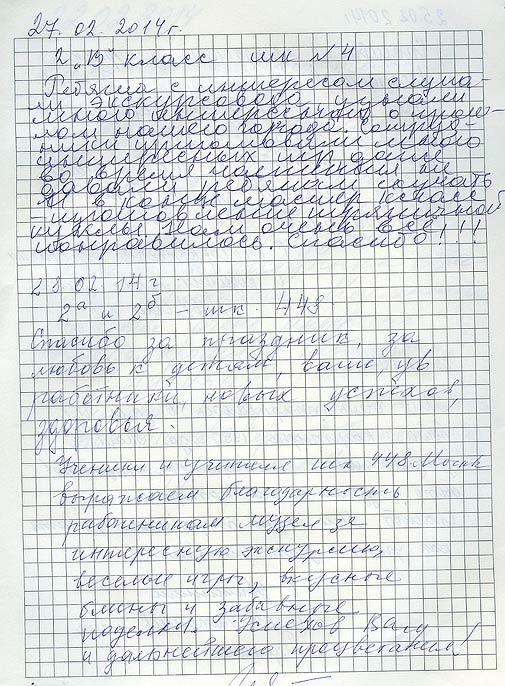 27.02.2014г.
2 „В" класс шк №4
Ребята с интересом слуша-
ли экскурсовода, узнали
много интересного о прош-
лом нашего города. Сотруд-
ники приготовили много
интересных игр даже
во время чаепития не
давали ребятам скучать
И в конце мастер класс
- изготовление тряпичной
куклы. Нам очень всё
понравилось. Спасибо!!!
28.02.14 г
2а и 2б - шк. 448
Спасибо за праздник, за
любовь к детям, вам, ув
работники, новых успехов,
здоровья.
Ученики и учителя шк 448 г.Москв
выражаем благодарность
работникам музея за
интересную экскурсию,
веселые игры, вкусные
блины и забавные
поделки. Успехов Вам
и дальнейшего процветания!